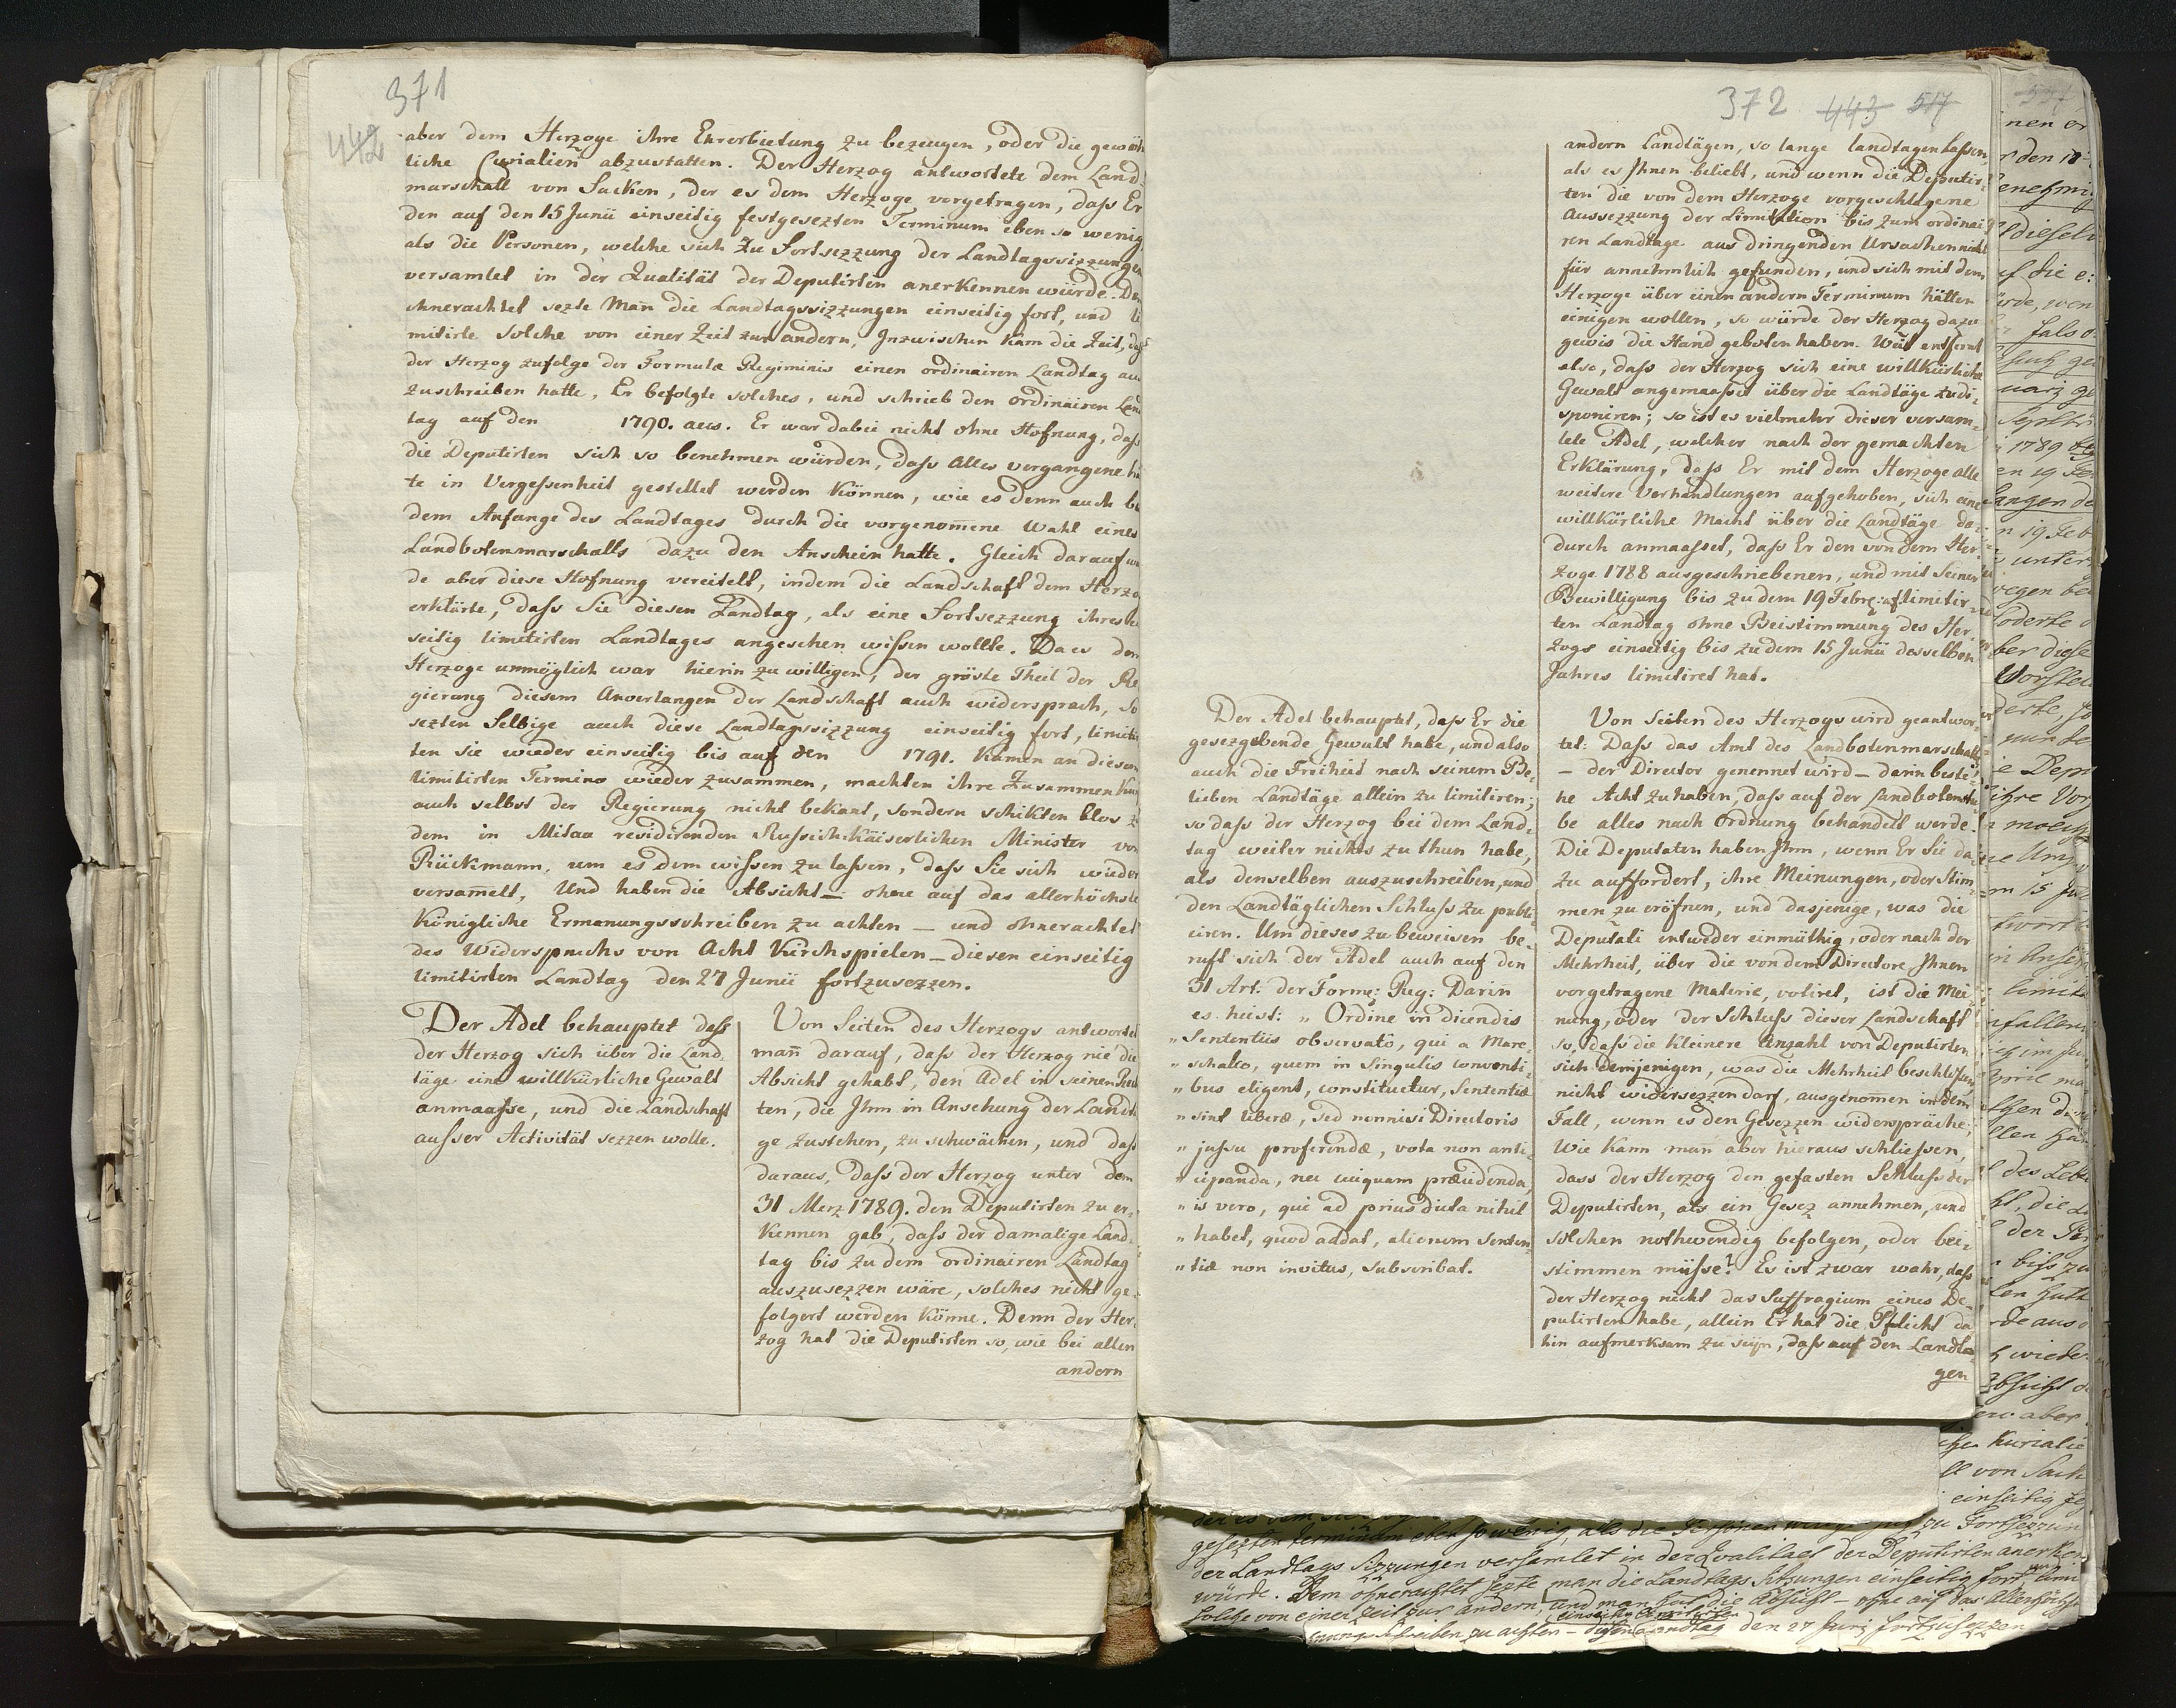 371
442
aber dem Herzoge ihre Ehrerbietung zu bezeugen, oder die gewöh
liche Curialien abzustatten. Der Herzog antwortete dem Land-
marschall von Sacken, der es dem Herzoge vorgetragen, dass Er
den auf den 15 Junii einseitig festgesezten Terminum eben so wenig
als die Personen, welche sich zu Fortsezzung der Landtagssizzungen
versamlet in der Qualität der Deputirten anerkennen würde. Dem
ohnerachtet sezte Man̄ die Landtagssizzungen einseitig fort, und li
mitirte solche von einer Zeit zur andern, Inzwischen kam die Zeit, daß
der Herzog zufolge der Formulæ Regiminis einen ordinairen Landtag aus
zuschreiben hatte, Er befolgte solches, und schrieb den ordinairen Land
tag auf den 1790. aus. Er war dabei nicht ohne Hofnung, daß
die Deputirten sich so benehmen würden, daß Alles vergangene hä
te in Vergessenheit gestellet werden können, wie es denn auch bei
dem Anfange des Landtages durch die vorgenom̄ene Wahl eines
Landbotenmarschalls dazu den Anschein hatte. Gleich darauf wur
de aber diese Hofnung vereitelt, indem die Landschaft dem Herzo
erklärte, daß Sie diesen Landtag, als eine Fortsezzung ihres ein
seitig limitirten Landtages angesehen wißen wollte. Da es dem
Herzoge unmöglich war hierin zu willigen, der gröste Theil der Re
gierung diesem Anverlangen der Landschaft auch widersprach, So
sezten Selbige auch diese Landtagssizzung einseitig fort, limitir
ten sie wieder einseitig bis auf den 1791. Kamen an diesem
limitirten Termino wieder zusammen, machten ihre Zusammenkun
auch selbst der Regierung nicht bekant, sondern schikten blos zu
dem in Mitau residirenden Russisch-Kaiserlichen Minister von
Rückmann, um es dem wißen zu laßen, daß Sie sich wieder
versam̄elt, Und haben die Absicht — ohne auf das allerhöchste
Königliche Ermanungsschreiben zu achten — und ohnerachtet
des Widerspruchs von Acht Kirchspielen — diesen einseitig
limitirten Landtag den 27 Junii fortzusezzen.
Der Adel behauptet daß
der Herzog sich über die Land-
täge eine willkürliche Gewalt
anmaaße, und die Landschaft
ausser Activität sezzen wolle.
Von Seiten des Herzogs antwortet
man̄ darauf, daß der Herzog nie die
Absicht gehabt, den Adel in seinen Rech
ten, die Ihm in Ansehung der Landtä
ge zustehen, zu schwächen, und daß
daraus, daß der Herzog unter dem
31 Merz 1789. den Deputirten zu er-
kennen gab, daß der damalige Land-
tag bis zu dem ordinairen Landtag
auszusezzen wäre, solches nicht ge-
folgert werden könne. Denn der Her-
zog hat die Deputirten so, wie bei allen
andern
372 443 517
andern Landtägen, so lange landtagen laßen,
als es Ihnen beliebt, und wenn die Deputir-
ten die von dem Herzoge vorgeschlagene
Aussezzung der Limitation bis zum ordinai-
ren Landtage aus dringenden Ursachen nicht
für annehmlich gefunden, und sich mit dem
Herzoge über einen andern Terminum hätten
einigen wollen, so würde der Herzog dazu
gewis die Hand geboten haben. Weit entfernt
also, daß der Herzog sich eine willkürliche
Gewalt angemaaßet über die Landtäge zu di-
sponiren; so ist es vielmehr dieser versam-
lete Adel, welcher nach der gemachten
Erklärung, daß Er mit dem Herzoge alle
weitere Verhandlungen aufgehoben, sich eine
willkürliche Macht über die Landtäge da-
durch anmaaßet, daß Er den von dem Her-
zoge 1788 ausgeschriebenen, und mit Seiner
Bewilligung bis zu dem 19 Febr: a: f limitir-
ten Landtag ohne Beistimmung des Her-
zogs einseitig bis zu dem 15 Junii desselben
Jahres limitiret hat.
Der Adel behauptet, daß Er die
gesezgebende Gewalt habe, und also
auch die Freiheit nach seinem Be-
lieben Landtäge allein zu limitiren;
so daß der Herzog bei dem Land-
tag weiter nichts zu thun habe,
als denselben auszuschreiben, und
den Landtäglichen Schluß zu publi-
ciren. Um dieses zu beweisen be-
ruft sich der Adel auch auf den
31 Art: der Form: Reg: Darin
es heist: „ Ordine in dicendis
„ Sententiis observato, qui a Mare-
„ schalco, quem in singulis conventi-
„ bus eligent, constituetur, Sententiæ
„ sint liberæ, sed nonnisi Directoris
„ jussu proferendæ, vota non anti-
„ cipanda, nec cuiquam præcludenda,
„ is vero, qui ad prius dicta nihil
„ habet, quod addat, alienum senten-
„ tiæ non invitus, subscribat.
Von Seiten des Herzogs wird geantwor-
tet: Daß das Amt des Landbotenmarschalls
— der Director genennet wird — darin beste-
he Acht zu haben, daß auf der Landbotenstu-
be alles nach Ordnung behandelt werde.
Die Deputaten haben Ihm, wenn Er Sie da-
zu auffordert, ihre Meinungen, oder Stim-
men zu eröfnen, und dasjenige, was die
Deputati entweder einmüthig, oder nach der
Mehrheit, über die von dem Directore Ihnen
vorgetragene Materie, votiret, ist die Mei-
nung, oder der Schluß dieser Landschaft
so, daß die kleinere Anzahl von Deputirten
sich demjenigen, was die Mehrheit beschloßen
nicht widersezzen darf, ausgenom̄en in dem
Fall, wenn es den Gesezzen widerspräche;
Wie kann man aber hieraus schließen,
dass der Herzog den gefasten Schluß der
Deputirten, als ein Gesez annehmen, und
solchen nothwendig befolgen, oder bei-
stimmen müße? Es ist zwar wahr, daß
der Herzog nicht das Suffragium eines De-
putirten habe, allein Er hat die Pflicht da-
hin aufmerksam zu seyn, daß auf den Landtä-
gen
gesezten Terminum eben so wenig, als die Personen
zu Fortsezzun
der Landtags Sizzungen versamlet in der Qvalitaet der Deputirten anerken
würde. Dem ohnerachtet sezte man die Landtags Sitzungen einseitig fort
solche von einer Zeit zur andern, und man hat die Absicht – ohne auf das Allerhöchst
einseitig limitirten
schreiben zu achten – diesen Landtag den 27 Junij fortzusezzen